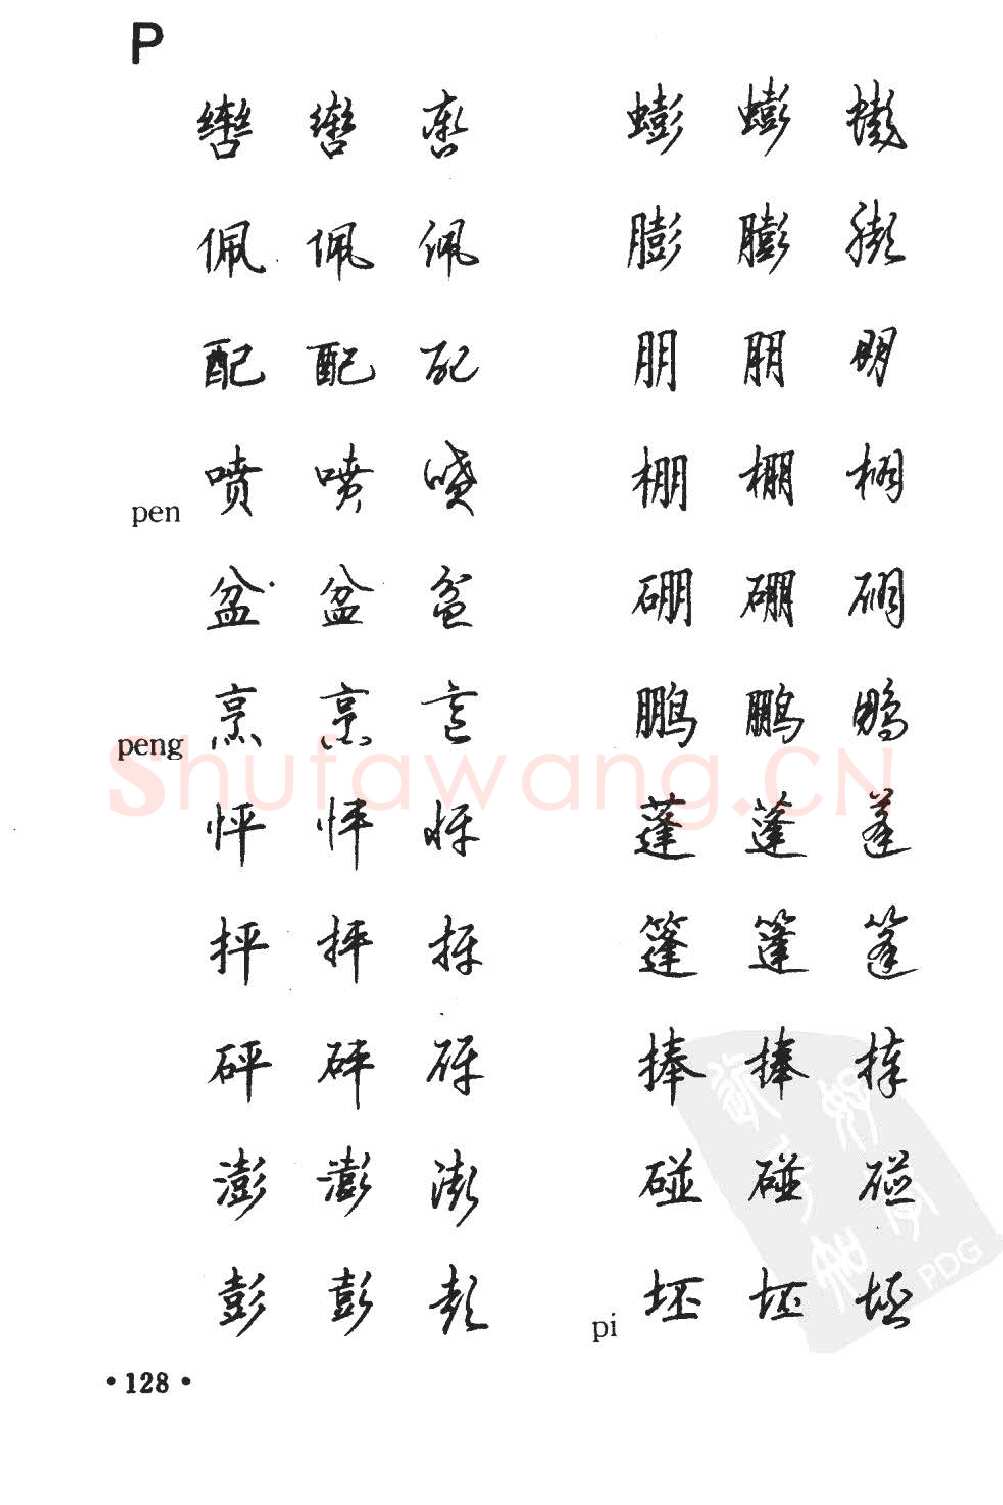 P
辔 辔 辔
佩 佩 佩
配 配 配
pen 喷 喷 喷
盆 盆 盆
peng 烹 烹 烹
怦 怦 怦
抨 抨 抨
砰 砰 砰
澎 澎 澎
彭 彭 彭
蟛 蟛 蟛
膨 膨 膨
朋 朋 朋
棚 棚 棚
硼 硼 硼
鹏 鹏 鹏
蓬 蓬 蓬
篷 篷 篷
捧 捧 捧
碰 碰 碰
pi 坯 坯 坯
·128·
Shufawang.CN
PDG